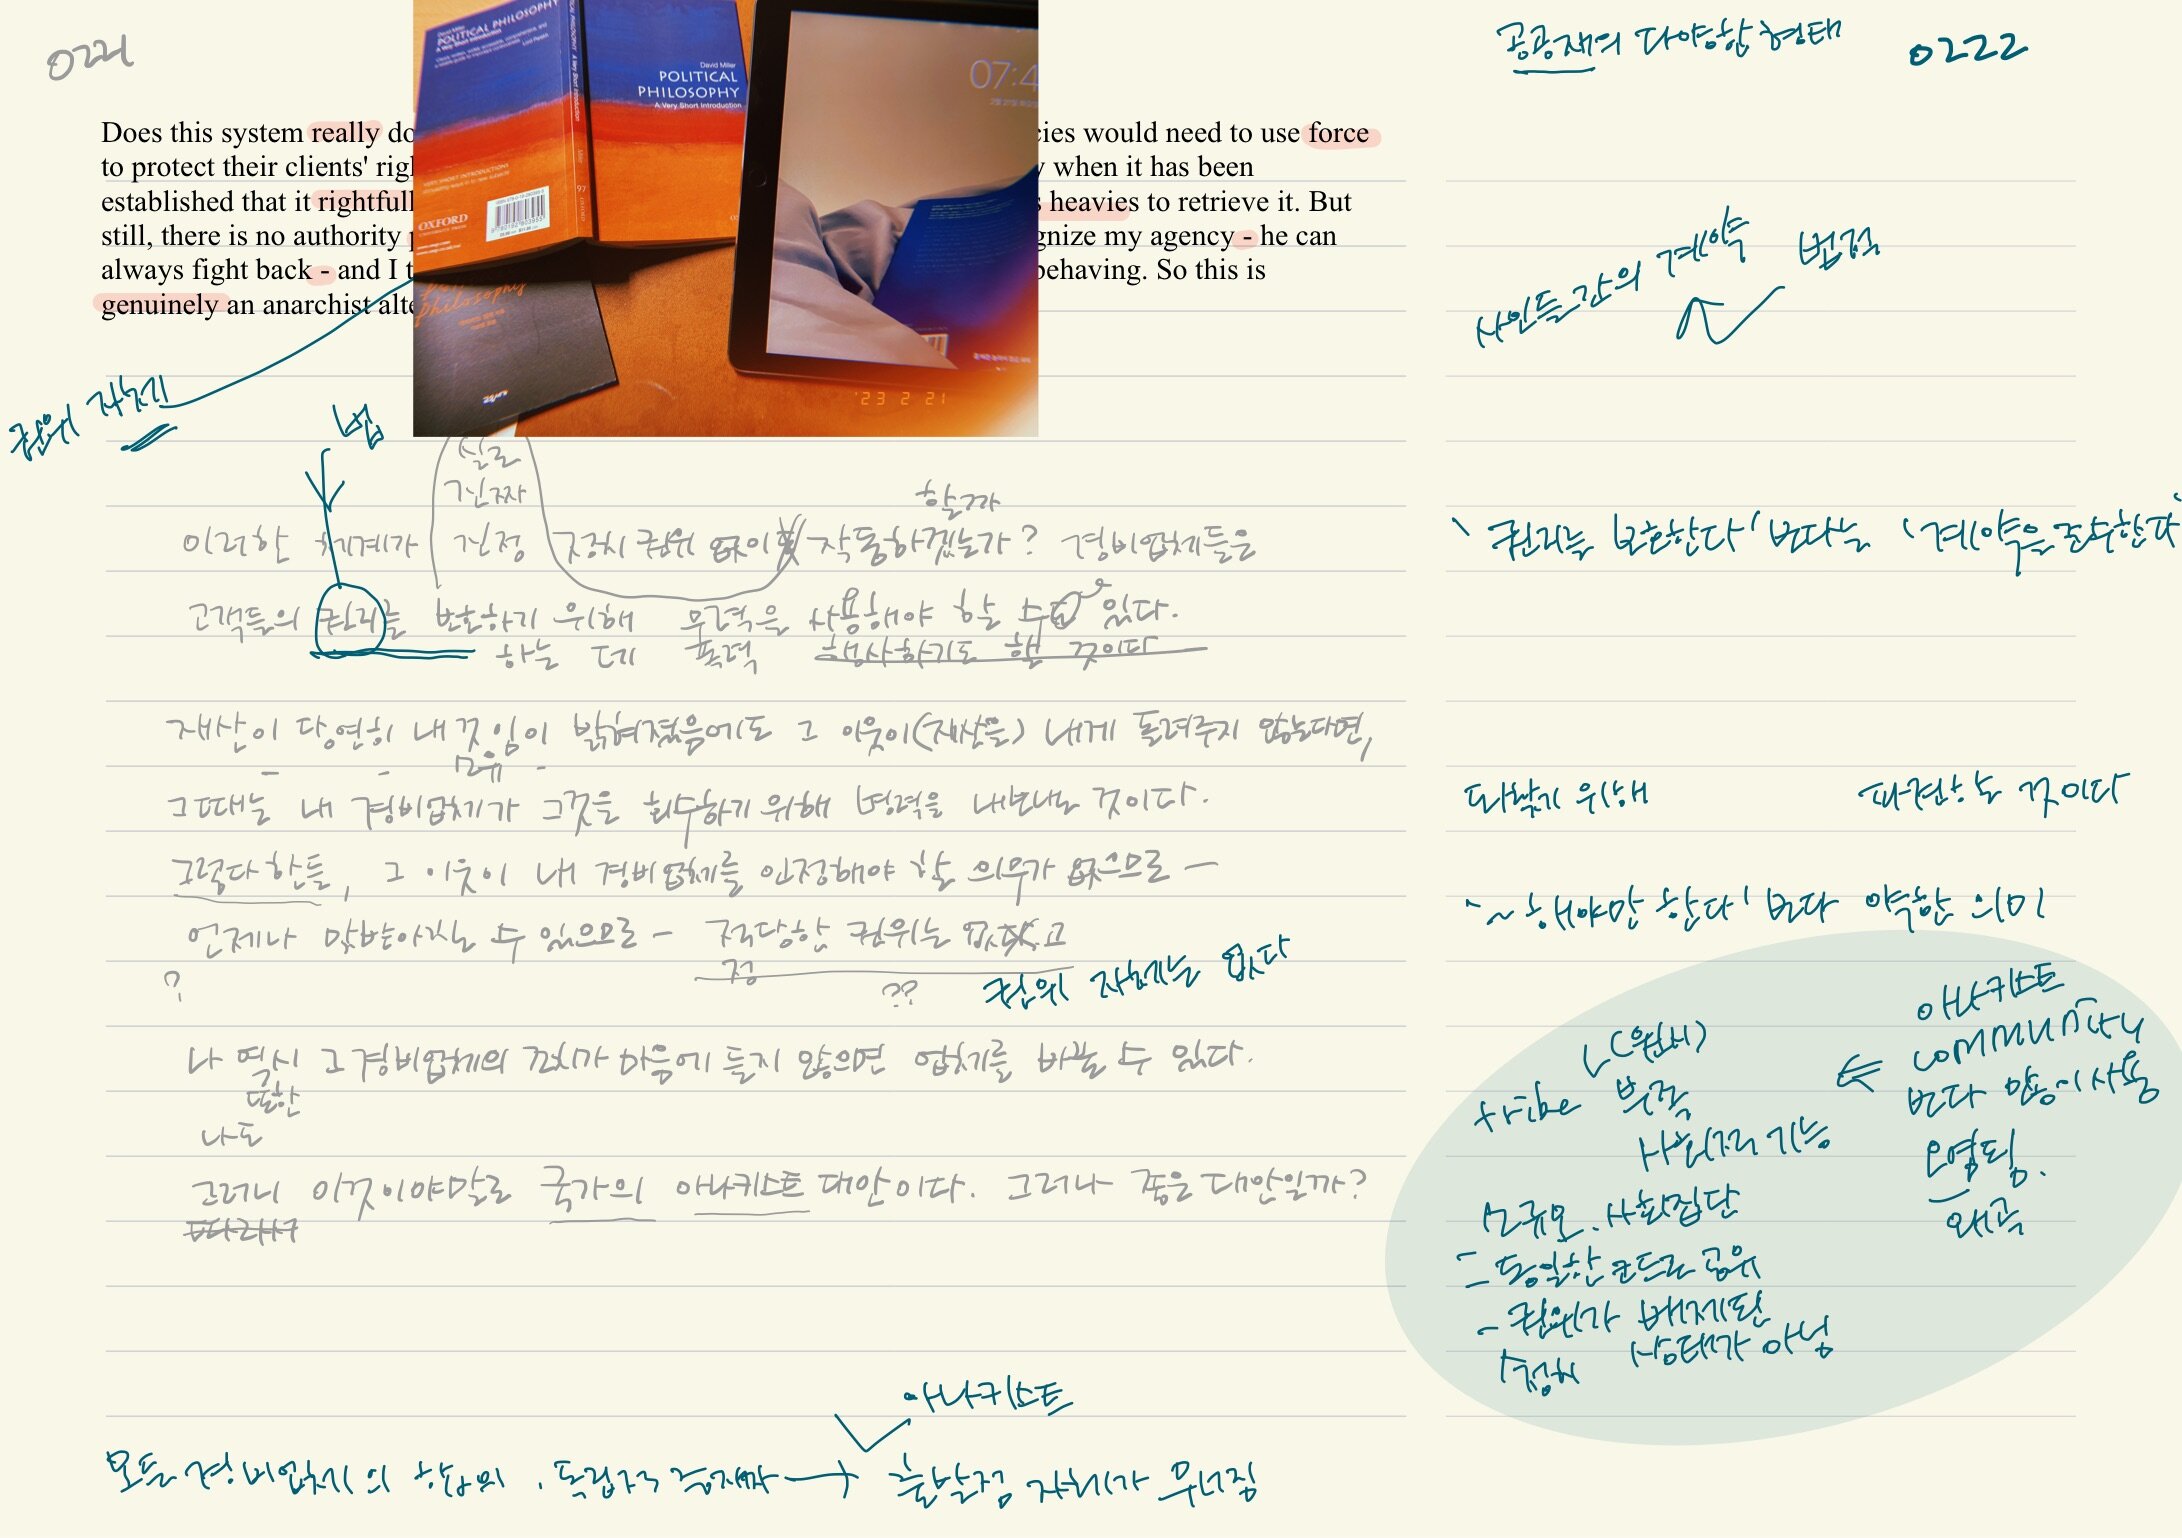 0221
공공재의 다양한 형태
0222
Does this system really do
cies would need to use force
to protect their clients' righ
y when it has been
established that it rightfull
s heavies to retrieve it. But
still, there is no authority
gnize my agency - he can
always fight back - and I t
behaving. So this is
genuinely an anarchist alte
David Miller
POLITICAL PHILOSOPHY
A Very Short Introduction
OXFORD
97
David Miller
POLITICAL
PHILOSOPHY
A Very Short Introduction
Philosophy
07:4
'23 2 21
사인들간의 계약
법적
권위 자체
법
실로
진짜
할까
이러한 체계가 진정 정치 권위 없이 작동하겠는가? 경비업체들은
고객들의 권리를 보호하기 위해 무력을 사용해야 할 수도 있다.
하는 데 폭력 행사하기도 할 것이다
'권리를 보호한다'보다는 '계약을 준수한다'
재산이 당연히 내 것임이 밝혀졌음에도 그 이웃이(재산을) 내게 돌려주지 않는다면,
소유
그때는 내 경비업체가 그것을 회수하기 위해 병력을 내보내는 것이다.
되찾기 위해
파견하는 것이다
그렇다 한들, 그 이웃이 내 경비업체를 인정해야 할 의무가 없으므로 —
'~해야만 한다'보다 약한 의미
언제나 맞받아칠 수 있으므로 — 적당한 권위는 없고
정
?
??
권위 자체는 없다
나 역시 그 경비업체의 조치가 마음에 들지 않으면 업체를 바꿀 수 있다.
또한
나도
그러니 이것이야말로 국가의 아나키스트 대안이다. 그러나 좋은 대안일까?
따라서
아나키스트
community
보다 많이 사용
오염됨.
왜곡
(원시)
tribe 부족
사회적 기능
소규모 사회집단
- 동일한 코드로 공유
- 권위가 배제된
상태가 아님
정치
아나키스트
모든 경비업체의 합의, 독립적 중재자 → 출발점 자체가 무너짐